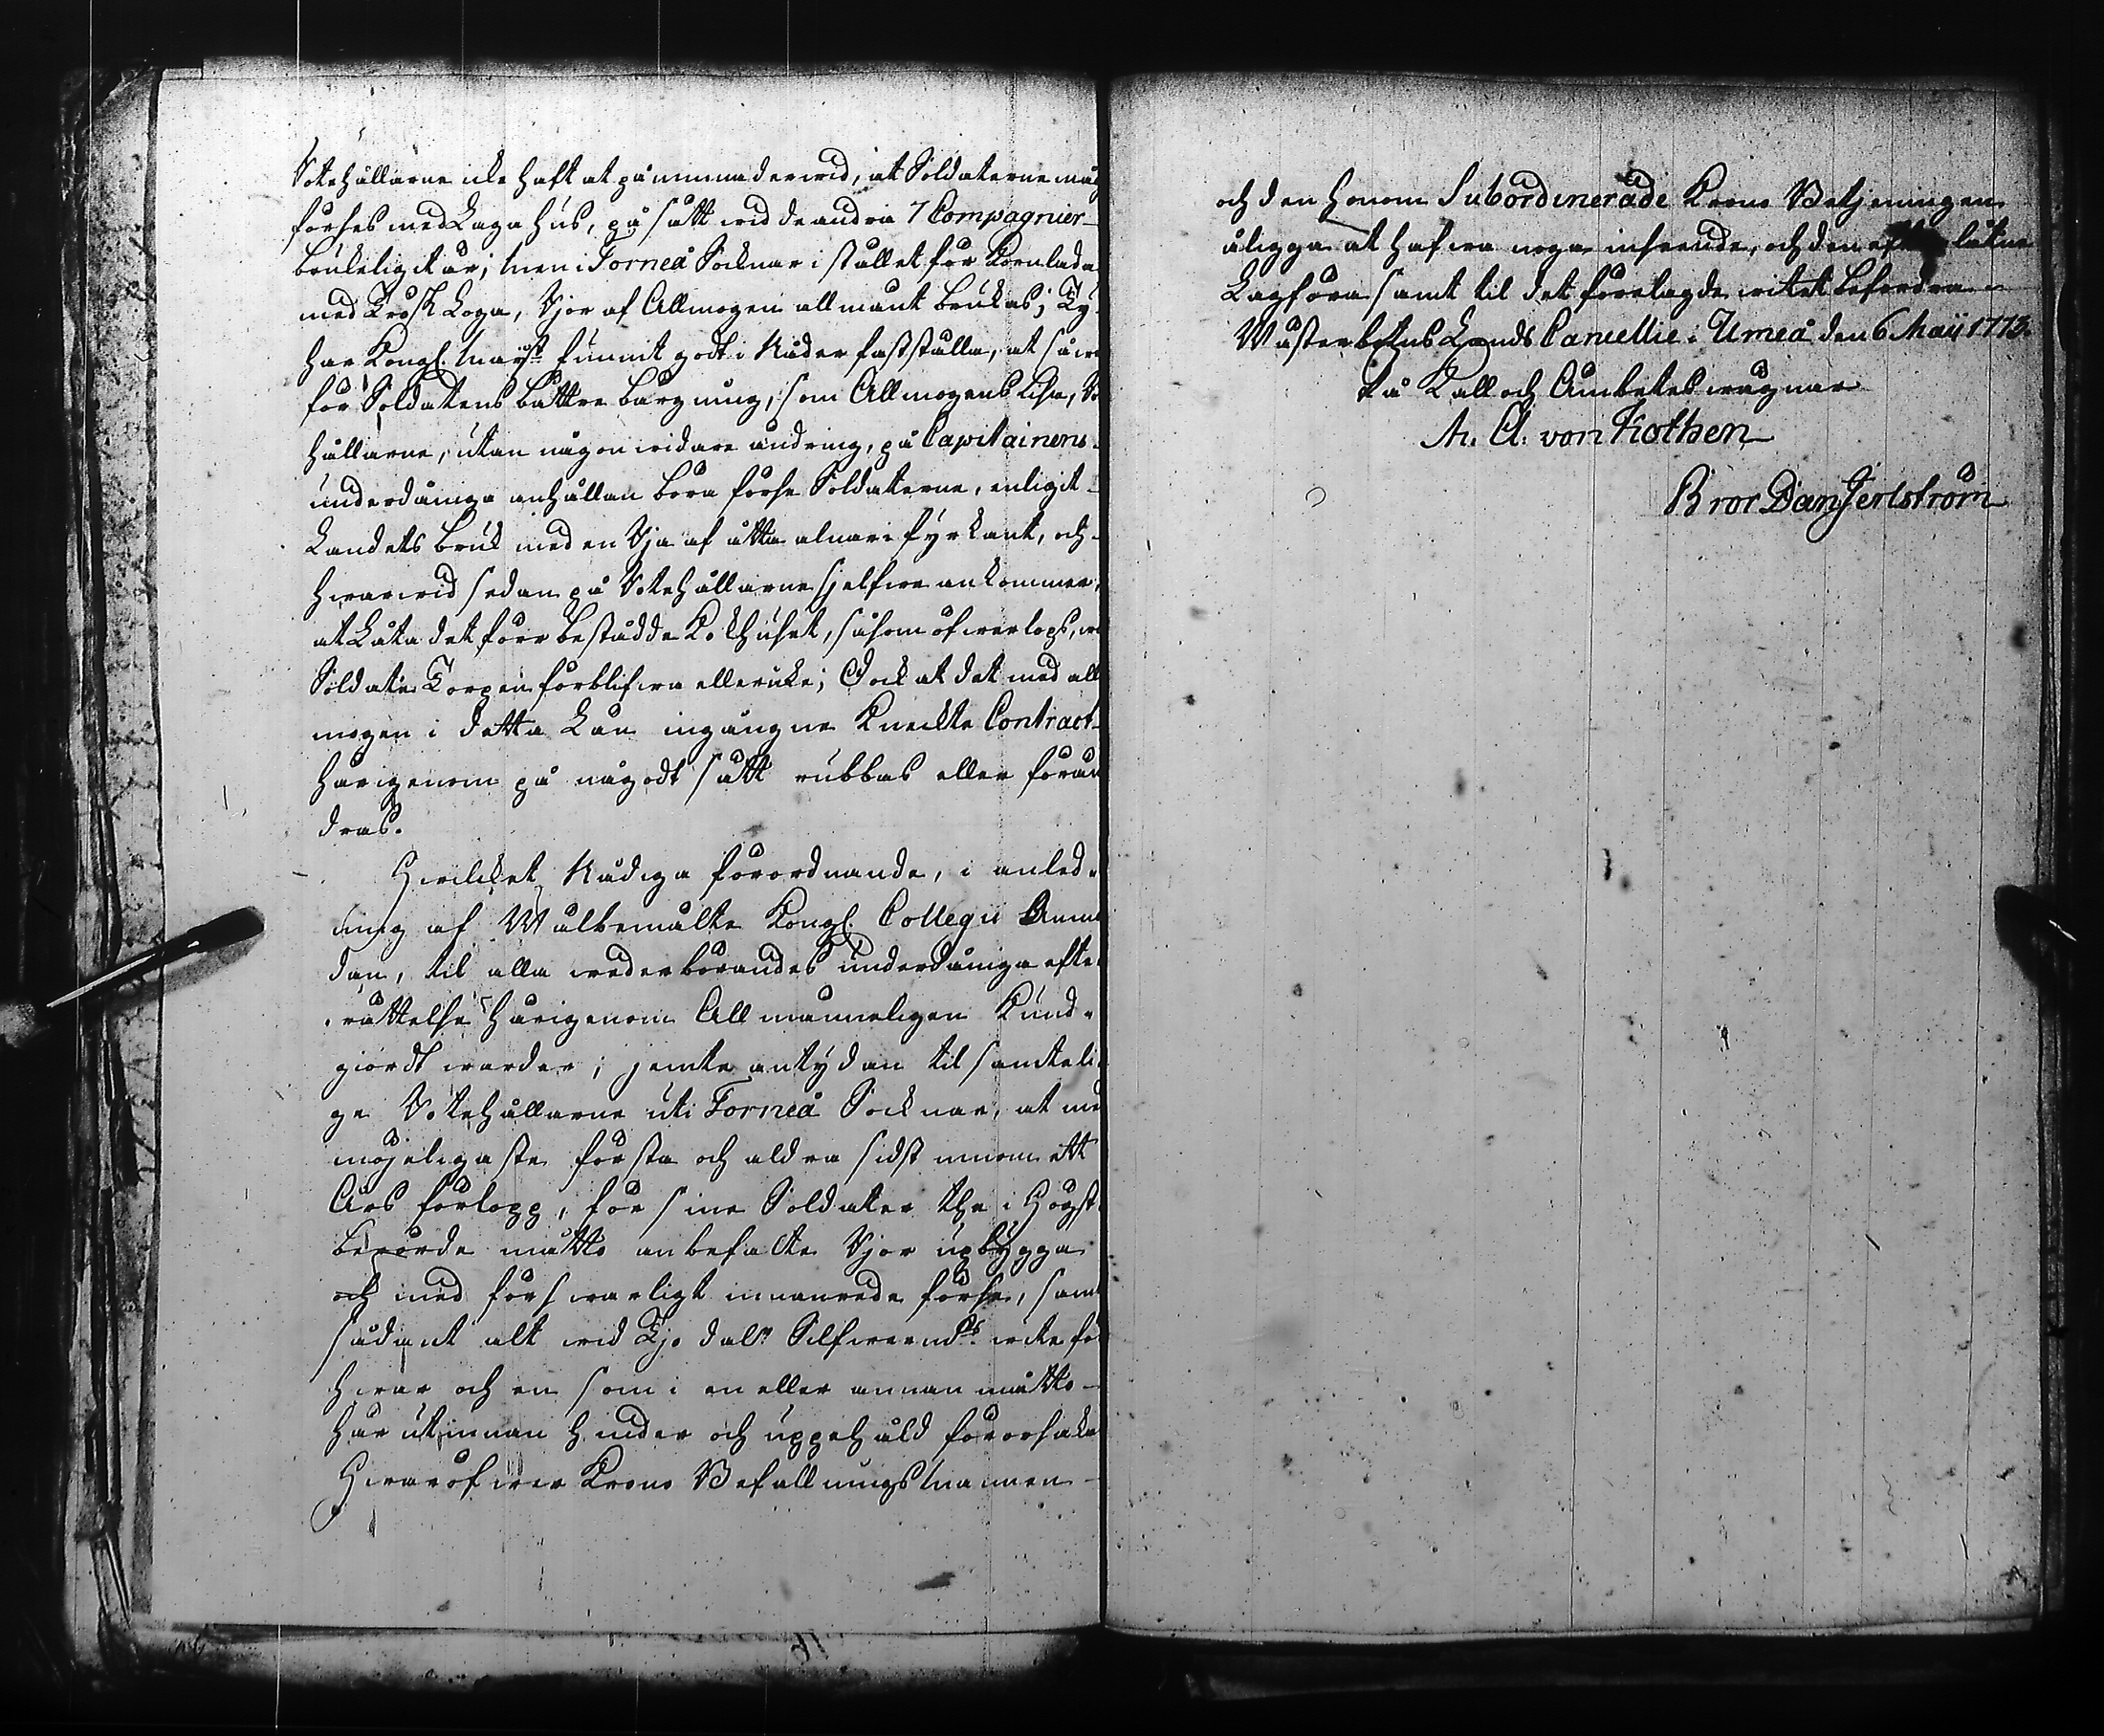 Rotehållarne icke haft at påminna derwid, at Soldaterne måg
förses med Laga hus, på sätt wid de andra 7 Compagnier
brukeligit är; Men i Torneå Socknar i stället för Kornlada
med Trösk Loga, Rjor af Allmogen allmänt brukas; Ty
har Kongl. Maij:st funnit godt i Nåder fastställa, at såwäl
för Soldatens bättre bärgning, som Allmogens lisa, Ro
hållarne, utan någon widare ändring, på Capitainens
underdåniga anhållan böra förse Soldaterne, enligit
Landets bruk med en Rja af åtta alnar i fyrkant, och
hwarwid sedan på Rotehållarne sjelfwe ankommer,
at Låta det förr bestådde Kokhuset, såsom öfwerlops, wid
Soldate Torpen förblifwa eller icke; Dock at det med all
mogen i detta Län ingångne Knechte Contract
härigenom på någodt sätt rubbas eller förän
dras.
Hwilcket Nådiga förordnande, i anled-
ning af Wälbemälte Kongl. Collegii Anm
dan, til alla wederbörandes underdåniga efter
rättelse härigenom Allmänneligen Kund-
giordt warder; jemte antydan til samteli
ge Rotehållarne uti Torneå Socknar, at med
möjeligaste första och aldra sidst innom ett
Års förlopp, för sine Soldater the i Högst
berörde måtto anbefalte Rjor upbygga
och med förswarligt innanrede förse, samt
sådant alt wid Tjo dal:r Silfwermt:s wite för
hwar och en som i en eller annan måtto
här utinnan hinder och uppehåld förorsakar
Hwaröfwer Krono Befallningsmannen
och den honom Subordinerade Krono Betjeningen
åligga at hafwa noga inseende, och den efterlåtne
Lagföra samt til det förelagde witet befordra.
Wästerbottns Lands Cancellie i Umeå den 6 Maij 1773.
På Kall och Ämbetes wägnar
M. A. von Kothen
Bror Dan Jerlström